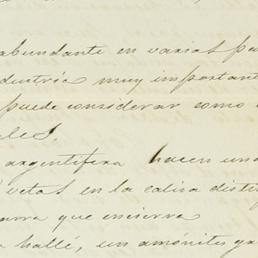 abundante en varias pa
dustria muy important
puede considerar como
les.
argentifera hacen una
vetas en la caliza disti
arra que encierra
hallé, un amónite ga